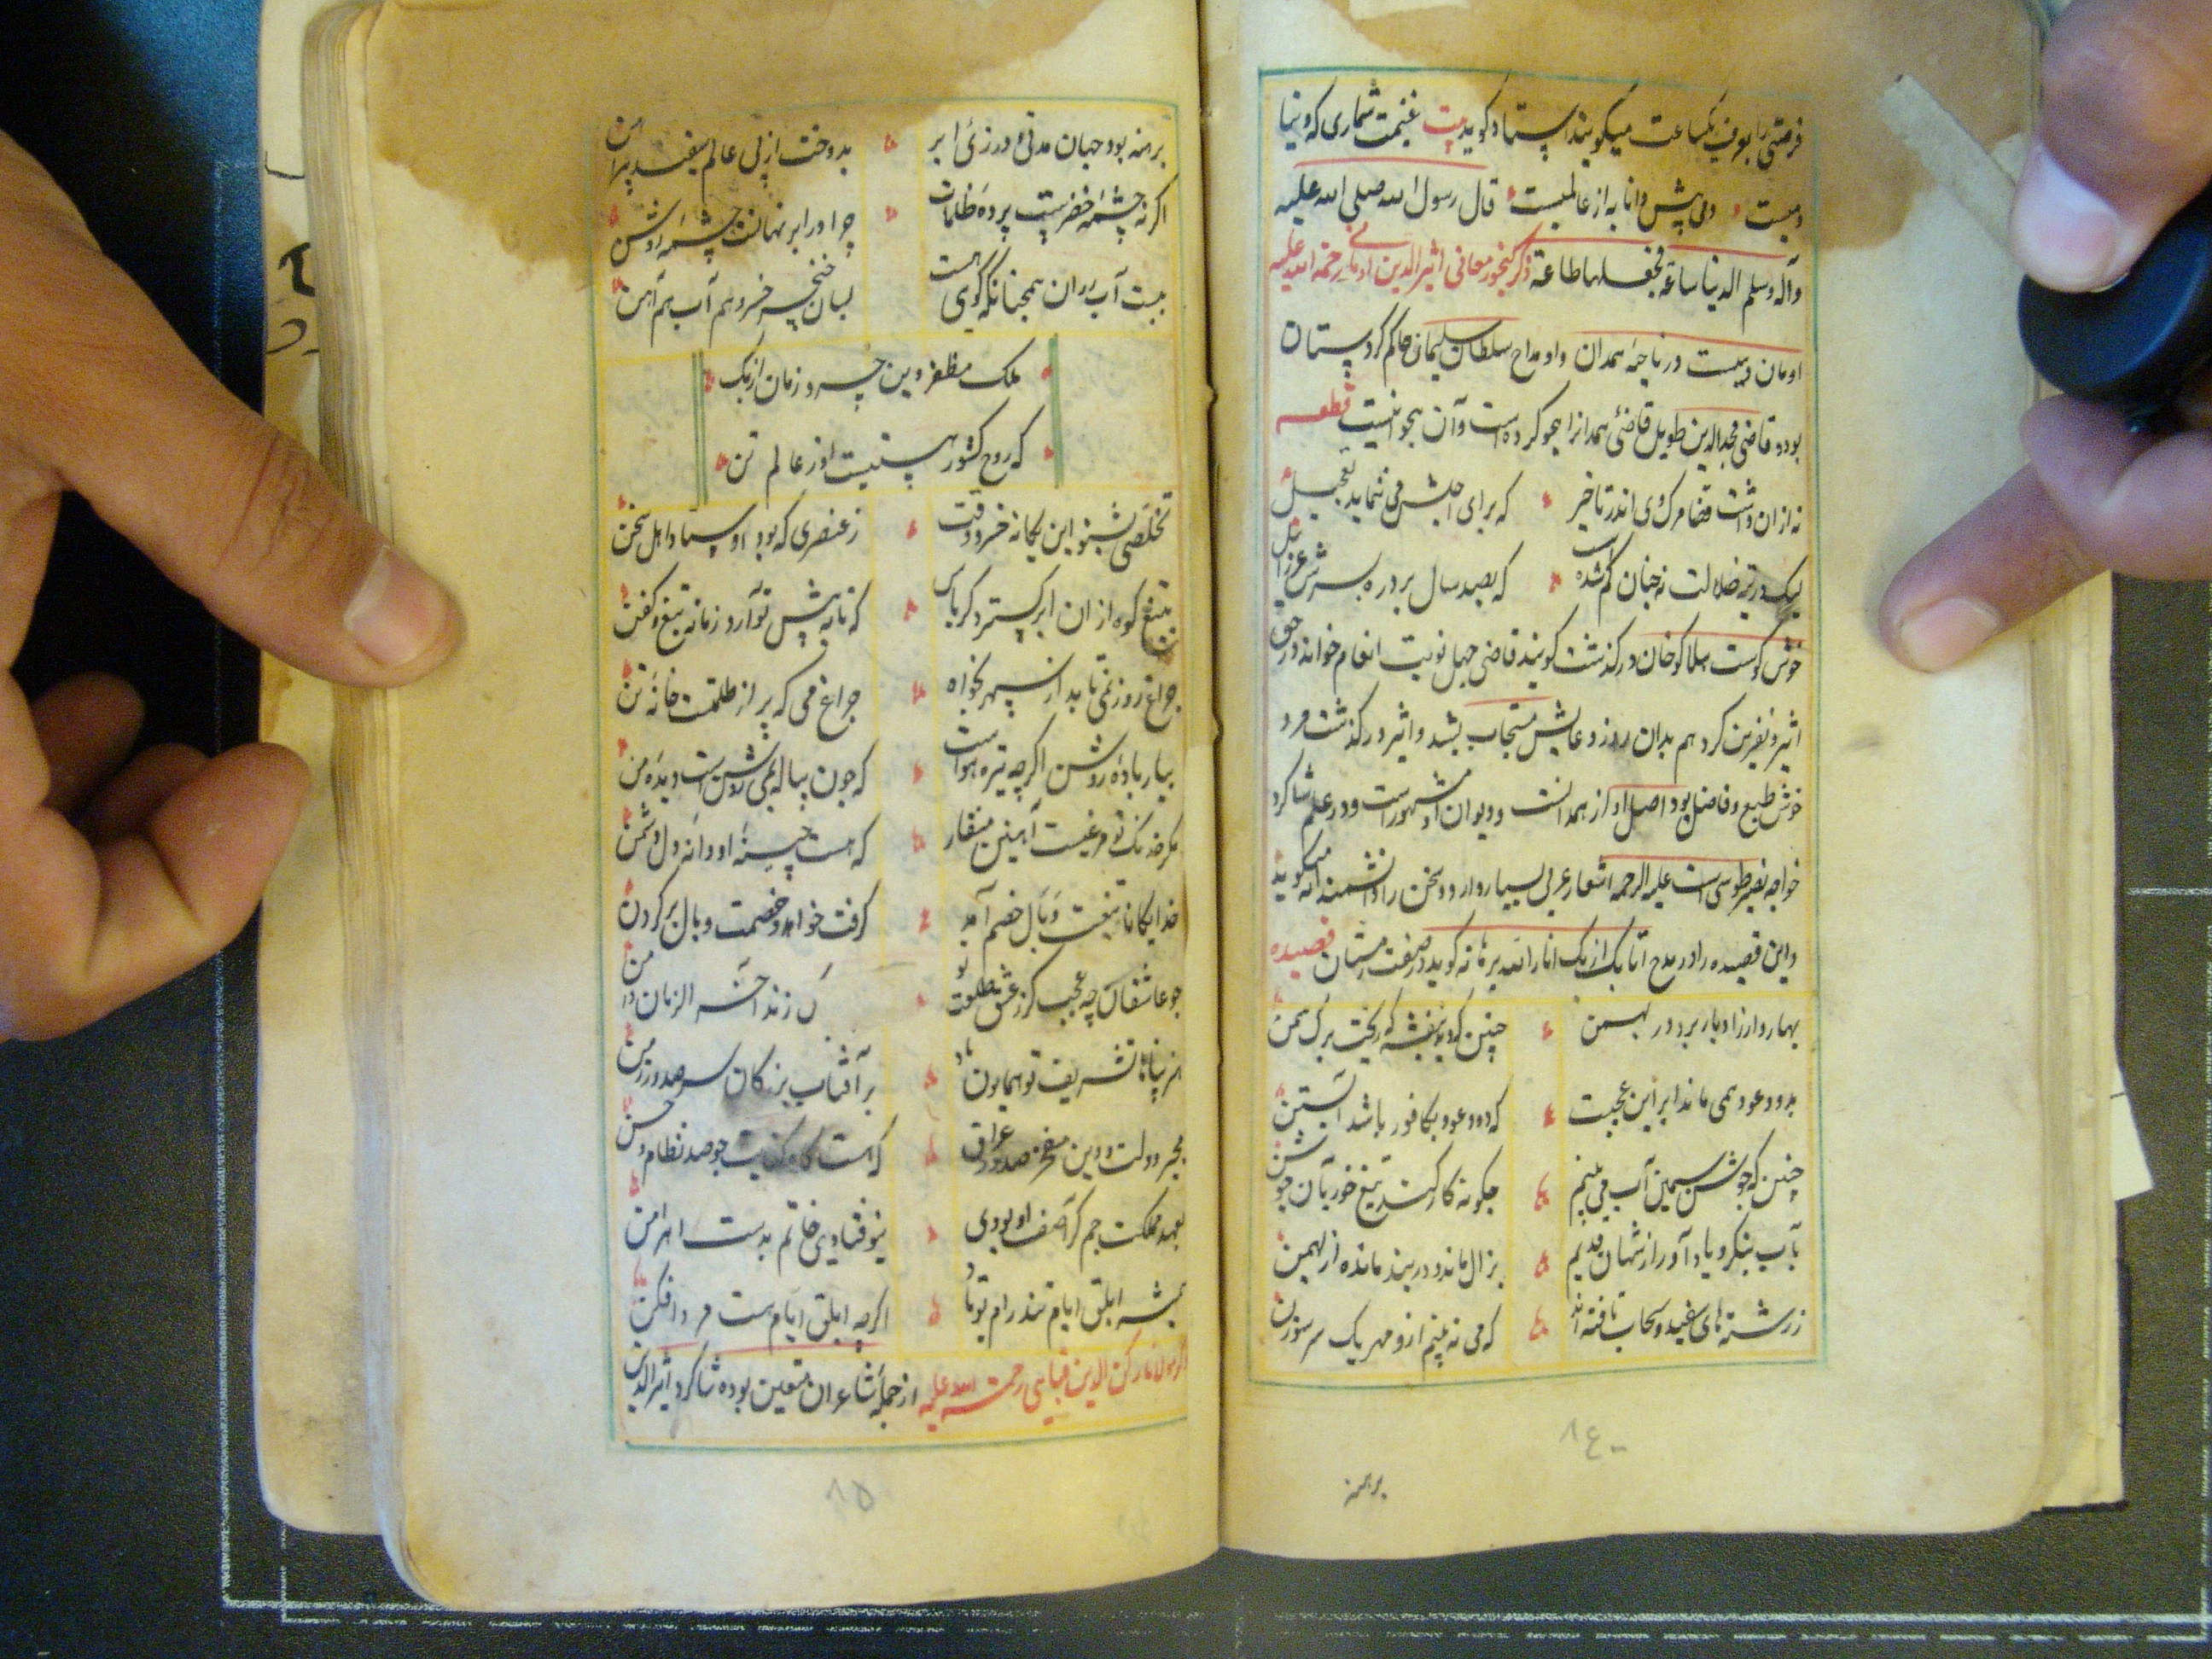 فرصتی را بعرف یکساعت میگویند استاد گوید بیت غنیمت شماری که دنیا
دمیست دمی پیش دانا به از عالمیست قال رسول الله صلی الله علیه
وآله وسلم الدنیا ساعة فجعلها طاعة ذکر گنجور معانی اثیرالدین اومانی رحمة الله علیه
اومان دیهیست در ناحیه همدان و او مداح سلطان سلیمان حاکم کردستان
بوده قاضی مجدالدین طویل قاضی همدانرا هجو کرده است و آن هجو اینست قطعه
نه از ان داشت قضا مرگ وی اندر تاخیر که برای اجلش می ننماید تعجیل
لیک در تیه ضلالت نه چنان گم شده است که بصد سال برد ره بسرش عزرائیل
خوش گوست هلاکو خان درگذشت گویند قاضی چهل نوبت انعام خواند در حق
اثیر و نفرین کرد هم بدان روز دعایش مستجاب بشد و اثیر درگذشت مرد
خوش طبع و فاضل بود اصل او از همدانست و دیوان او مشهور است و در علم شاگرد
خواجه نصیر طوسی است علیه الرحمه اشعار عربی بسیار دارد و سخن را دانشمندانه میگوید
و این قصیده را در مدح اتابک ازبک انار الله برهانه گوید در صفت زمستان قصیده
بهاروار زاد باز برد در بهمن چنین که دید بنفشه که ریخت برگ سمن
بدود عود همی ماند ابر این عجبست که دود عود بکافور باشد آبستن
چنین که جوشن سیمین آب می بینم چگونه کار کند تیغ خور بآن جوشن
بآب بنگر و یاد آور از شهان قدیم بزال ماند و در بند مانده از بهمن
ز رشته های سفید و سحاب تافته اند که می نه بینم ازو مهر یک سر سوزن
برهنه
برهنه بود جهان مدتی و درزئ ابر بدوخت از پی عالم سفید پیراهن
اگر نه چشمه خضرست پرده ظلمات چرا در ابر نهانست چشمه روشن
ببست آب روان همچنانکه گوی هست بسان خنجر خسرو هم آب هم آهن
ملک مظفر دین خسرو زمان ازبک
که روح کشور هستیست او ز عالم تن
تخلصی بشنو این یگانه خسرو وقت ز عنصری که بود اوستاد اهل سخن
بتیغ کوه از ان ابر گسترد کرباس که تا به پیش تو آرد زمانه تیغ و کفن
چراغ روز نمی تابد از سپهر بخواه چراغ می که پر از ظلمت خانه تن
بیار باده روشن اگر چه تیره هواست که چون پیاله بمی روشن است دیده من
مگر خدنگ تو مرغیست آهنین منقار که هست چینه او دانه دل دشمن
خدایگانا تیغت وبال خصم آمد گرفت خواهد خصمت وبال بر گردن
چو عاشقان چه عجب گر ز عشق طلعت تو زند آخر الزمان دامن
هنرپناها تشریف تو همایون باد بر آفتاب بزرگان سر صدور زمن
مجیر دولت و دین مفخر صدور عراق که هست گاه کفایت چو صد نظام و حسن
بعهد مملکت جم گر آصف او بودی نیوفتادی خاتم بدست اهرامن
همیشه ابلق ایام تند رام تو باد اگر چه ابلق ایام هست مرد افکن
ذکر مولانا رکن الدین قبایی رحمة الله علیه از جمله شاعران متعین بوده شاگرد اثیرالدین